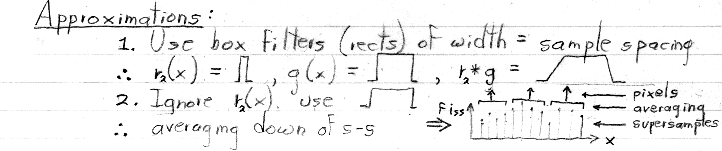 Approximations:
1. Use box filters (rects) of width = sample spacing
∴ r₂(x) = , g(x) = , r₂*g =
2. Ignore r₂(x). use
∴ averaging down of s-s ⇒
Fiss
pixels
averaging
supersamples
x